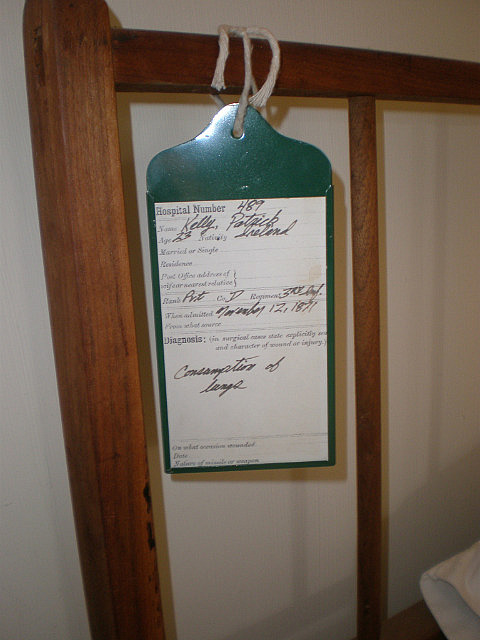 Hospital Number 489
Name Kelly, Patrick
Age 23 Nativity Ireland
Married or Single
Residence
Post Office address of
wife or nearest relative }
Rank Pvt Co. D Regiment 3rd Inf.
When admitted November 12, 1871
From what source
Diagnosis: (in surgical cases state explicitly seat
and character of wound or injury.)
Consumption of
lungs
On what occasion wounded
Date
Nature of missile or weapon